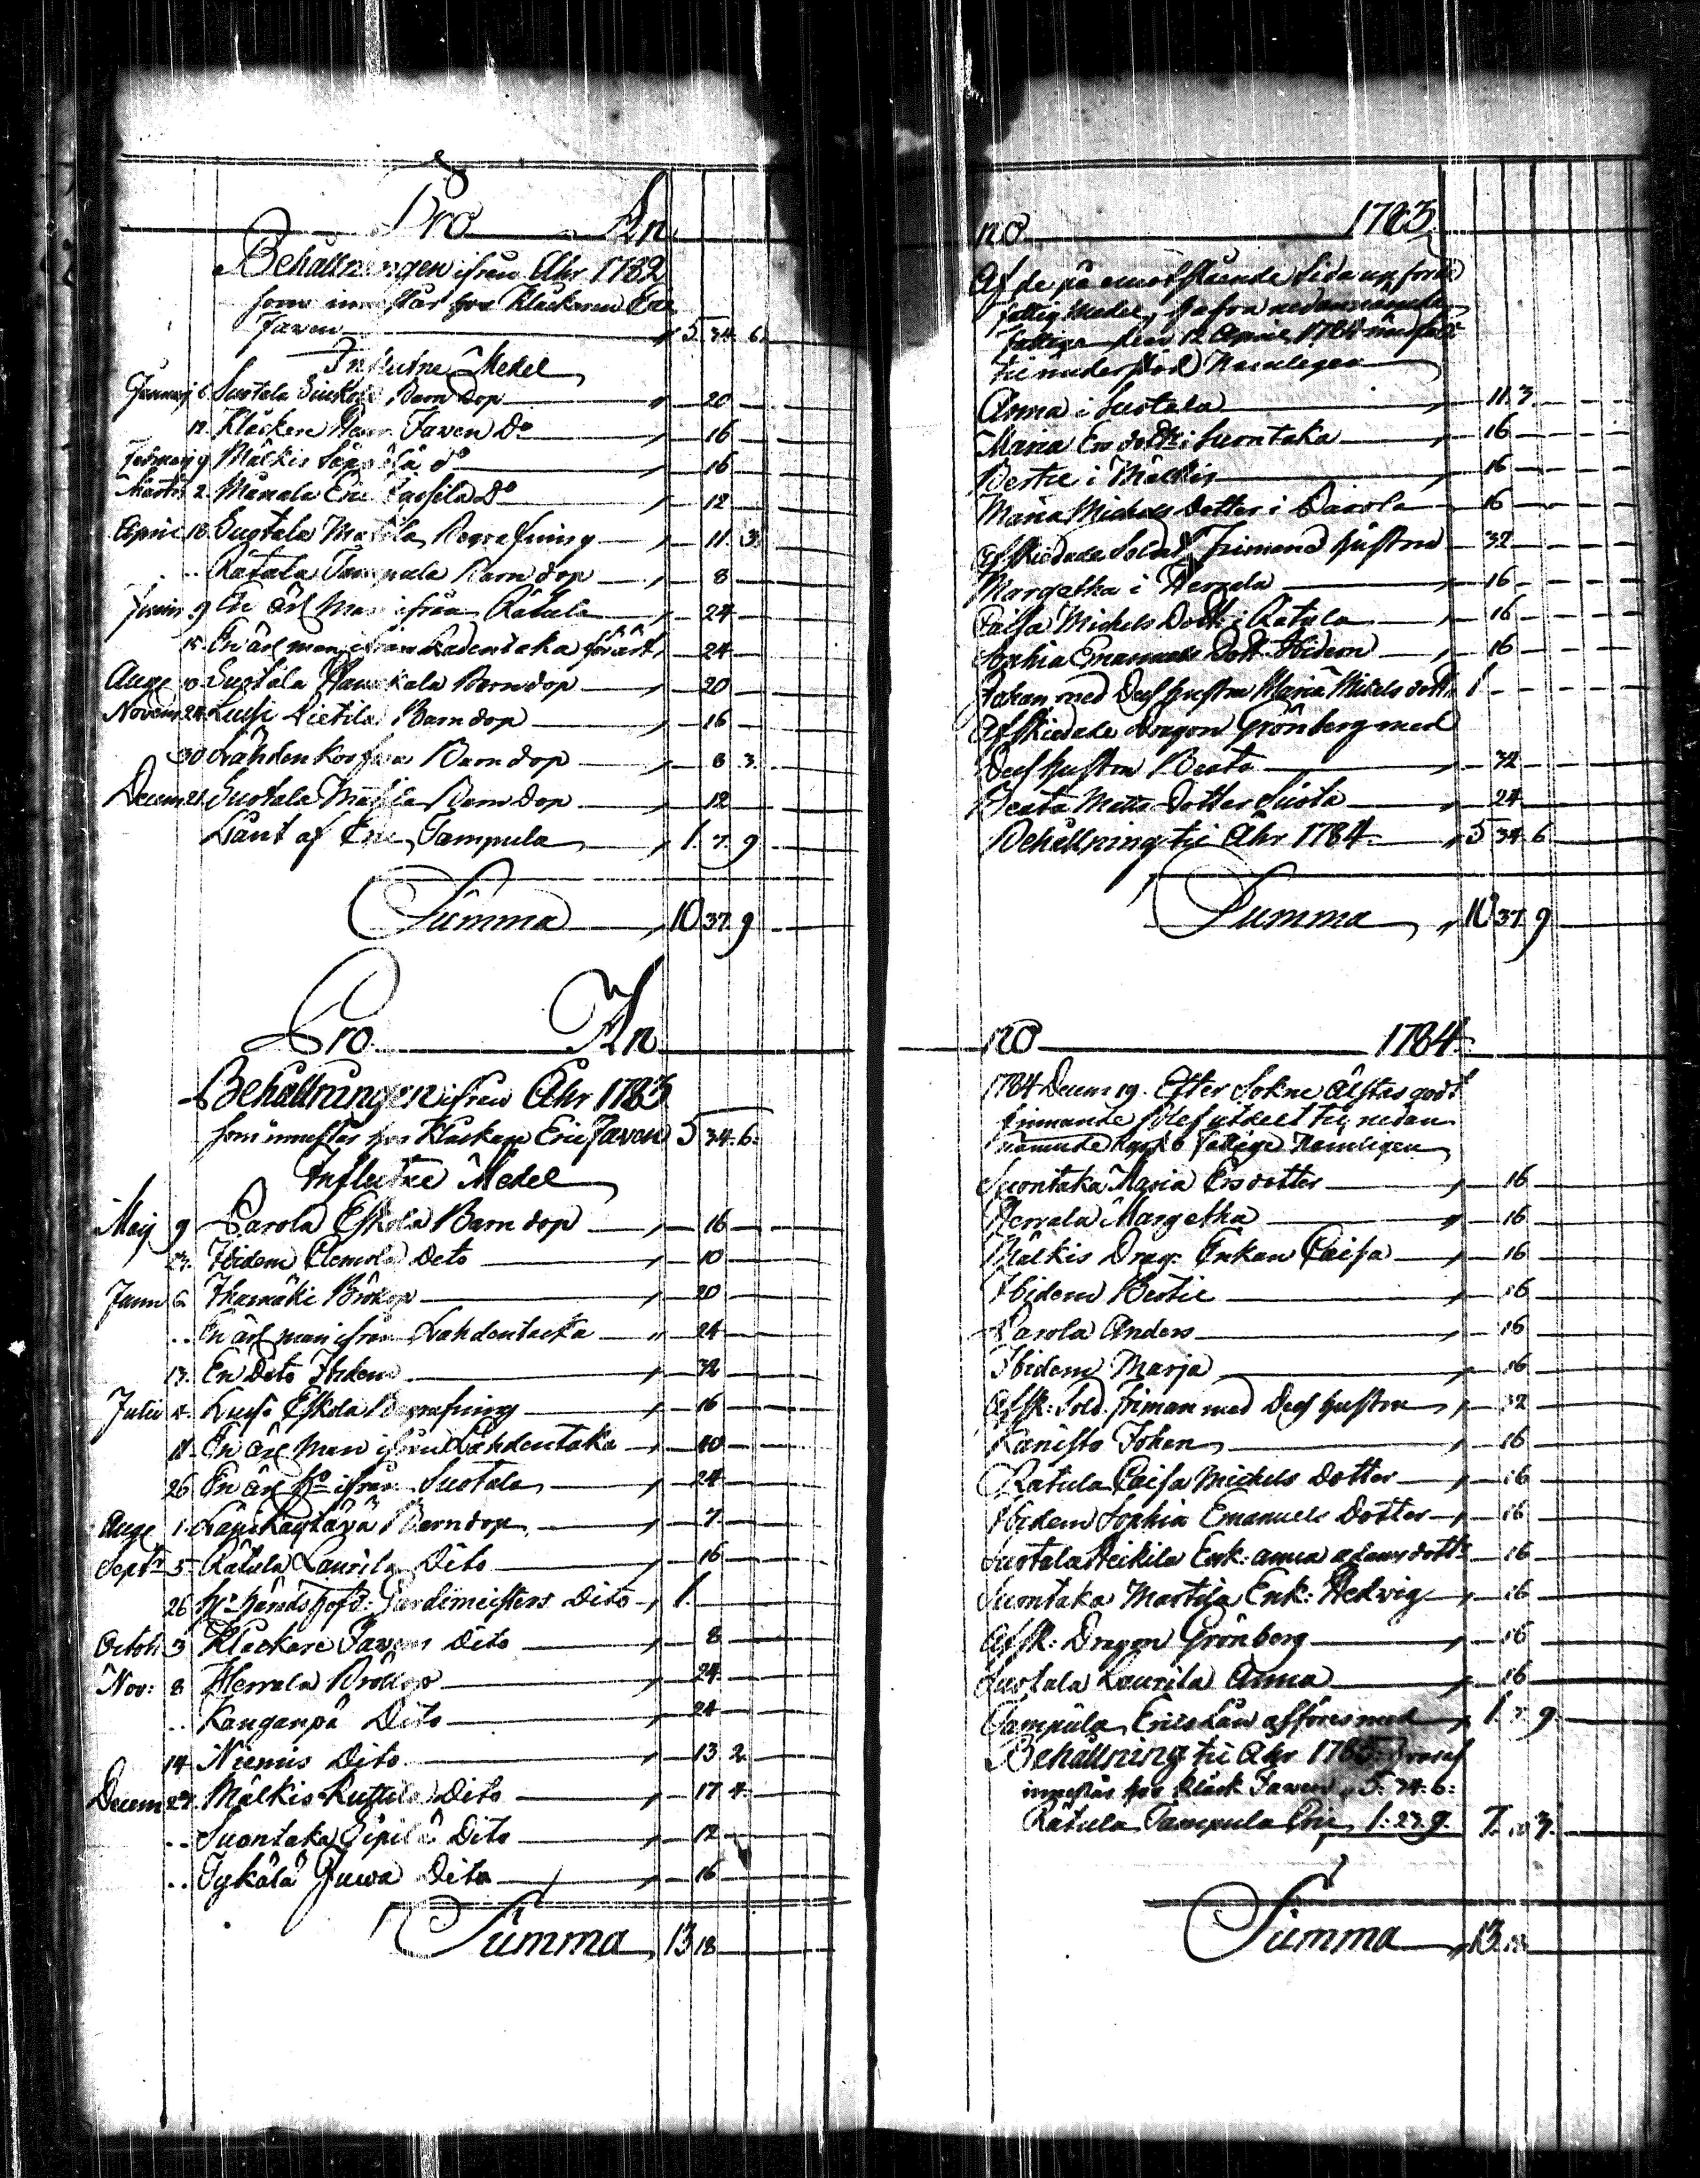 Pro An
Behållningen ifrån Åhr 1782
som innestår hos Klåckaren Eric
Javen 5 34. 6.
Influtne Medel
Januarij 6 Suotala Barn dop 20
12. Klåckare Javen Do 16
Februarij 9 Mälkis do 16
Martii 2. Eric do 12
April 18. Suotala Mattila Begrafning 11. 3.
.. Rätula Tampula Barn dop 8
Junii 9 En ärl. Man ifrån Rätula 24
15. En ärl man ifrån Ladentaka förärt 24
Aug. 10 Suotala Barndop 20
Novem 24 Lussi Pietilä Barn dop 16
30 Lähdenkorfwa Barn dop 8 3.
Decem 21 Suotala Barn dop 12
Lånt af Eric Tampula 1. 7. 9
Summa 10 37. 9
Pro An
Behållningen ifrån Åhr 1783
som innestår hos Klåckare Eric Javen 5 34. 6.
Influtne Medel
Maij 9 Parola Eskola Barn dop 16
23. Ibidem Clemola Deto 10
Junii 6. Ihamäki Brölop 20
.. En ärl man ifrån Lahdentaka 24
13. En Deto Ibidem 32
Julii 4. Lussi Eskola Begrafning 16
11. En ärl Man ifrån Lahdentaka 10
26 En ärl ifrån Suotala 24
Aug. 1. Barndop 7.
Septr 5 Rätula Laurila Dito 16
26 Hr Häradshöfd: Gardemeisters Dito 1.
Octob: 3 Klåckare Javens Dito 8
Nov: 8 Herrala Brölop 24
.. Kanganpä Dito 24
14 Niemis Dito 13 2.
Decem 27. Mälkis Dito 17 4.
.. Suontaka Sipilä Dito 12
.. Sykälä Juwa Dito 16
Summa 13 18
no 1783
Af de på emotstående sida upförde
fattig Medel, hafva nedannämnde
fattiga den 12 April 1784
til understöd Nemligen
Anna i Suotala 11. 3.
Maria Ers dottr i Suontaka 16
Bertil i Mälkis 16
Maria Michels Dotter i Parola 16
Afskiedade Soldat Frimans hustru 32
Margetha i Herrala 16
Caisa Michels Dottr i Rätula 16
Sophia Emanuels Dott Ibidem 16
Johan med Dess hustru Maria Mikels dottr 1
Afskiedade Dragon Grönberg med
Dess hustru Beata 32
Beata Matts dotter 24
Behållning til Åhr 1784 5 34. 6
Summa 10 37. 9
no 1784
1784 Decem 19. Efter Sokne Älstas godt
finnande blef utdelt til nedan
nämnde fattige Nemligen
Suontaka Maria Ersdotter 16
Herrala Margetha 16
Mälkis Drag: Enkan Caisa 16
Ibidem Bertil 16
Parola Anders 16
Ibidem Marja 16
Afsk: Sold. Friman med Dess hustru 32
Kanisto Johan 16
Rätula Caisa Michels Dotter 16
Ibidem Sophia Emanuels Dotter 16
Suotala Heikila Enk: Anna adams dottr 16
Suontaka Martila Enk: Hedvig 16
Afsk: Dragon Grönberg 16
Suotala Laurila Anna 16
Tampula Erics Lån afföres med 1 7. 9.
Behållning til Åhr 1785: hvaraf
innestår hos Klåck Javen 5. 34. 6:
Rätula Tampula Eric 1: 23. 9. 7. 10 3.
Summa 13 18